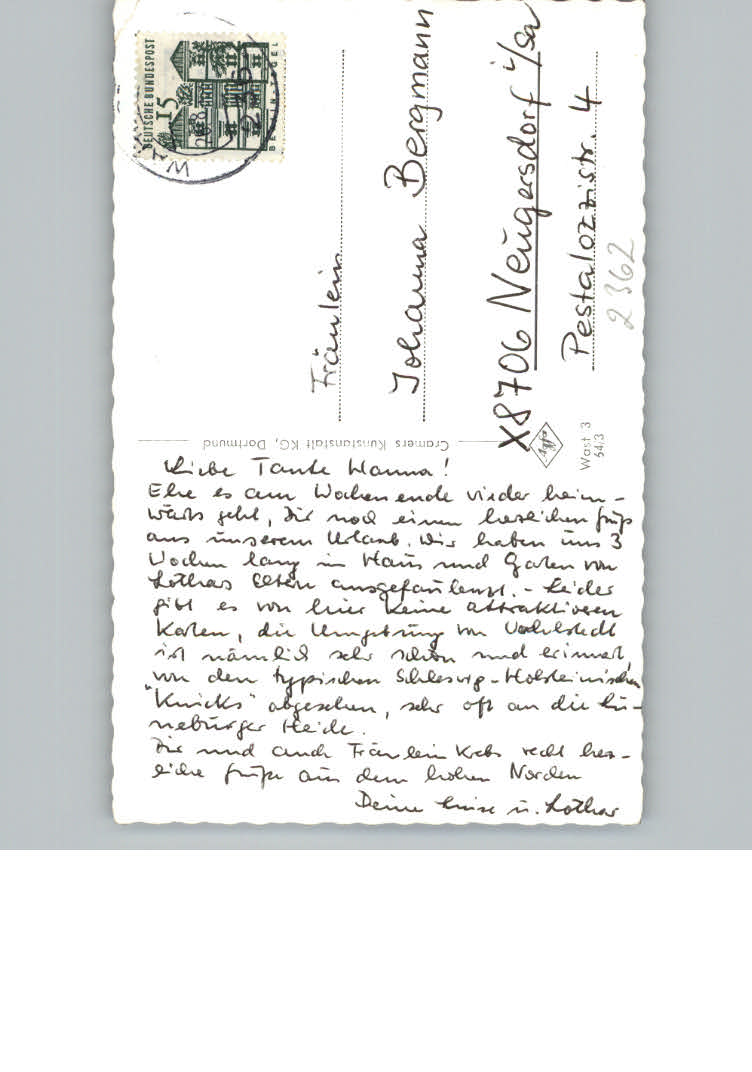 Liebe Tante Hanna!
Ehe es am Wochenende wieder heim-
wärts geht, Dir noch einen herzlichen Gruß
aus unserem Urlaub. Wir haben uns 3
Wochen lang in Haus und Garten von
Lothars Eltern ausgefaulenzt. - Leider
gibt es von hier keine attraktiveren
Karten, die Umgebung von
ist nämlich sehr schön und erinnert,
von den typischen Schleswig-Holsteinischen
"Knicks" abgesehen, sehr oft an die Lü-
neburger Heide.
Dir und auch Fräulein Krebs recht herz-
liche Grüße aus dem hohen Norden
Deine Luise u. Lothar
Fräulein
Johanna Bergmann
X8706 Neugersdorf i/Sa
Pestalozzistr. 4
2362
Cramers Kunstanstalt KG, Dortmund
Agfa
Wast 3
54/3
DEUTSCHE BUNDESPOST
15
BERLIN-TEGEL